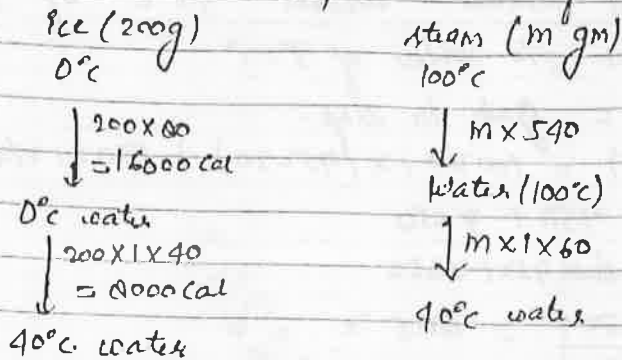 Ice (200g)
0°C
200 X 80
= 16000 Cal
0°C water
200 X 1 X 40
= 8000 Cal
40°C. water
steam (m gm)
100°C
m X 540
Water (100°C)
m X 1 X 60
40°C water